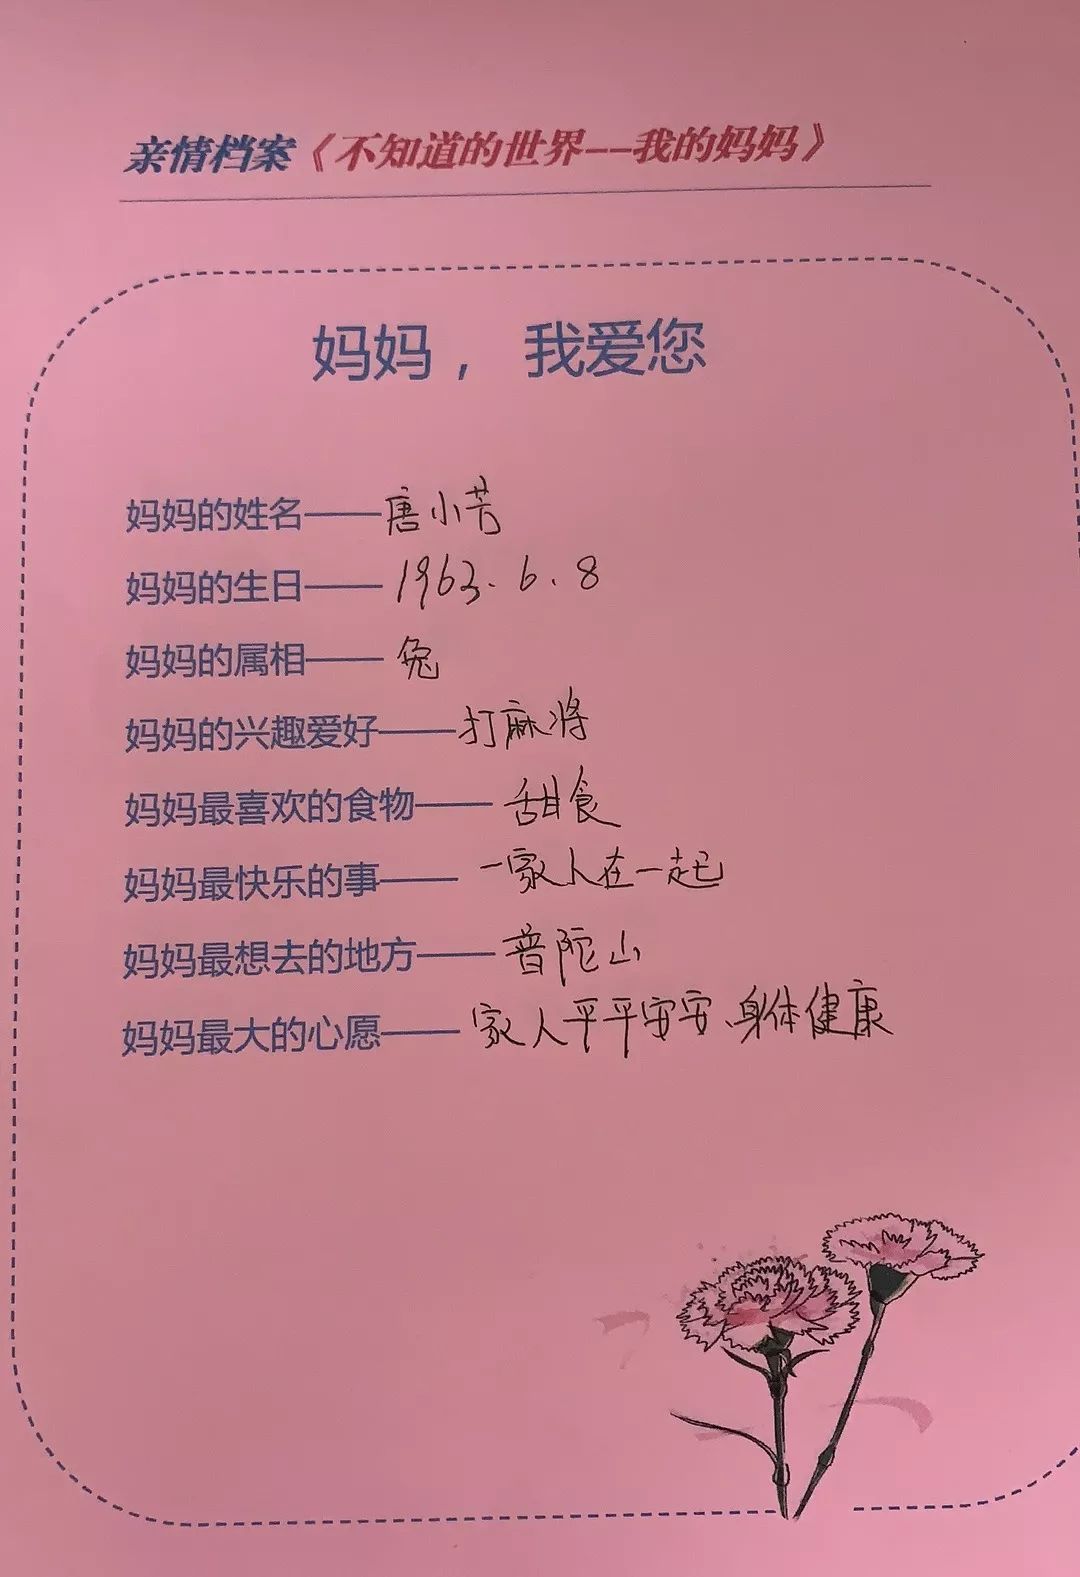 亲情档案《不知道的世界--我的妈妈》
妈妈，我爱您
妈妈的姓名——唐小芳
妈妈的生日——1963.6.8
妈妈的属相——兔
妈妈的兴趣爱好——打麻将
妈妈最喜欢的食物——甜食
妈妈最快乐的事——一家人在一起
妈妈最想去的地方——普陀山
妈妈最大的心愿——家人平平安安、身体健康